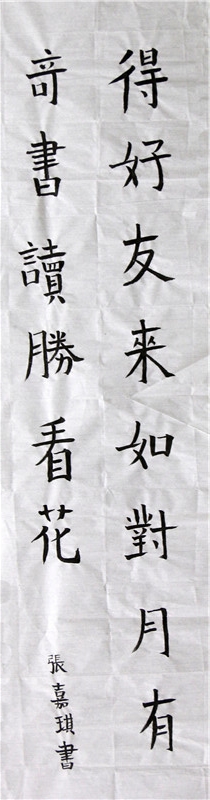 得好友來如對月有
奇書讀勝看花
張嘉琪書